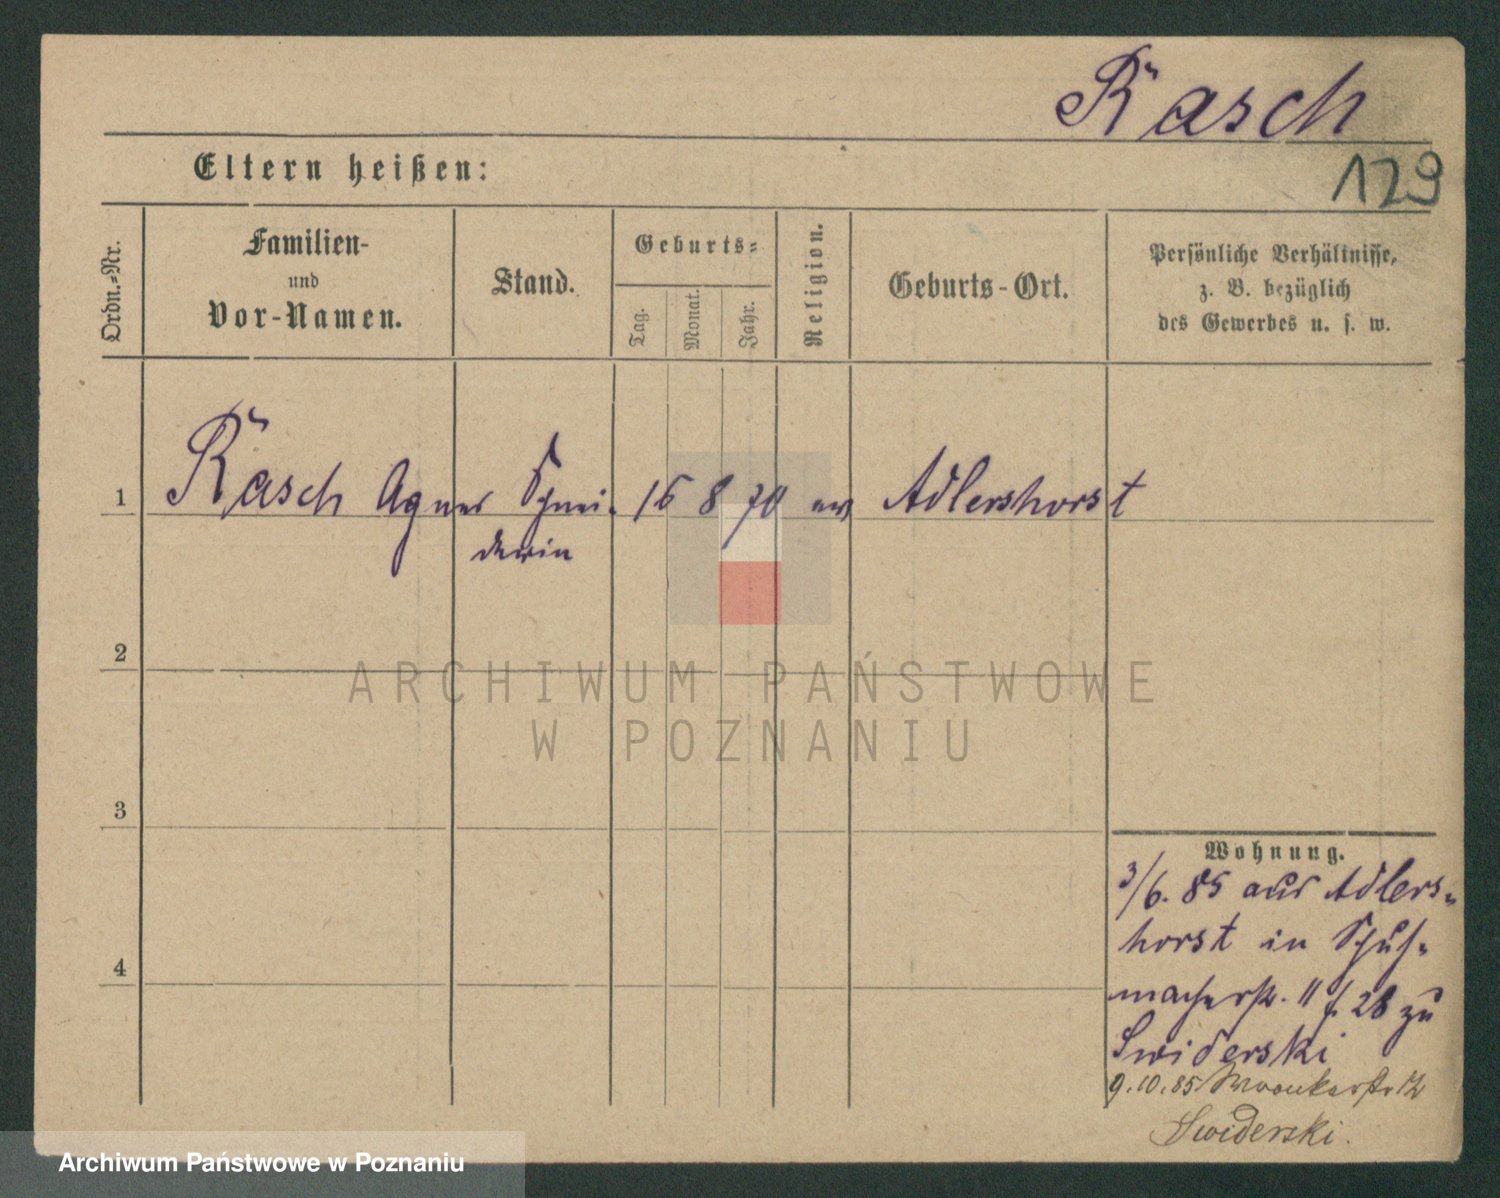 Rasch
129
Eltern heißen:
Ordn.-Nr.
Familien-
und
Vor-Namen.
Stand.
Geburts-
Tag.
Monat.
Jahr.
Religion.
Geburts-Ort.
Persönliche Verhältnisse,
z. B. bezüglich
des Gewerbes u. s. w.
1 Rasch Agnes Schnei- 16 8 70 ev Adlershorst
derin
2
ARCHIWUM PAŃSTWOWE
W POZNANIU
3
4
Wohnung.
3/6. 85 aus Adlers-
horst in Schuh-
macherstr. 11 f. 28 zu
Swiderski
9.10.85 Wronkerstr 12
Swiderski.
Archiwum Państwowe w Poznaniu